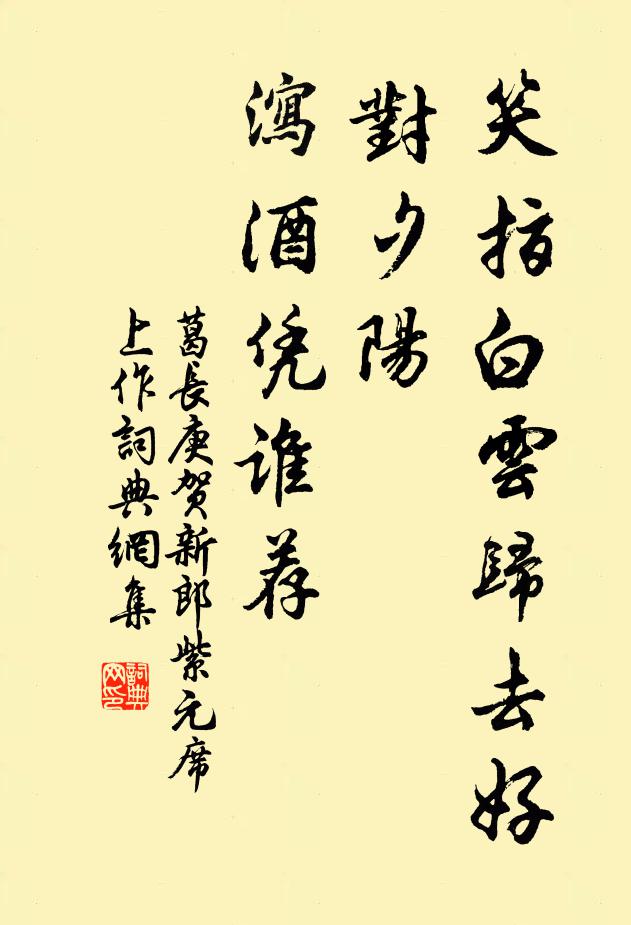 笑指白雲歸去好
對夕陽
瀉酒凭誰荐
葛長庚贺新郎紫元席
上作詞典網集
詞典网印